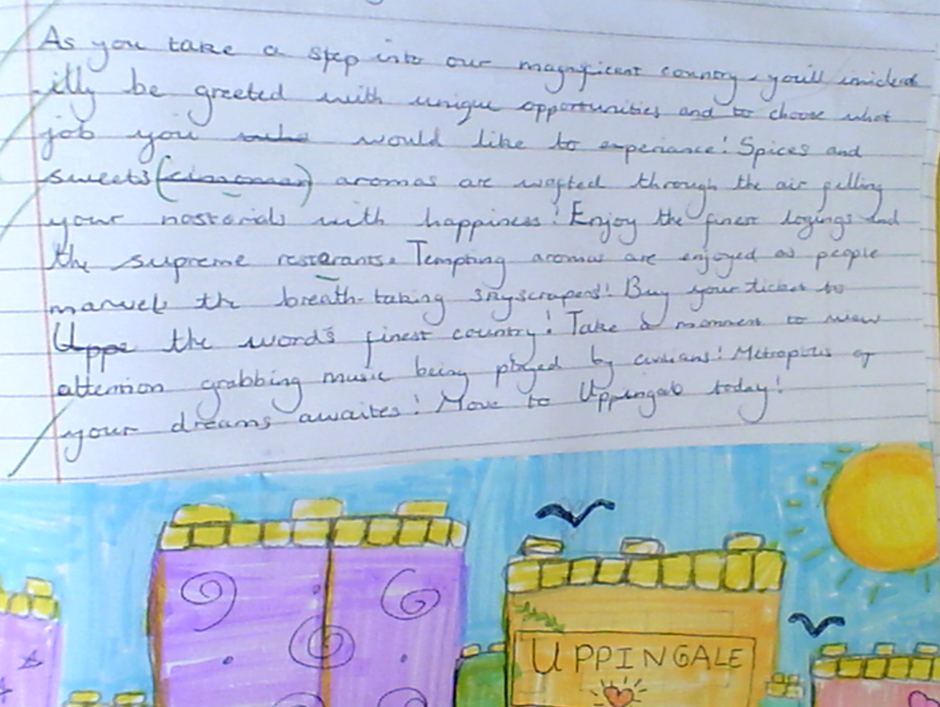 As you take a step into our magnificent country, you'll imideat
illy be greeted with unique opportunities and to choose what
job you would like to experiance! Spices and
sweets (cinnoman) aromas are wafted through the air filling
your nosterials with happiness! Enjoy the finest logings and
the supreme resterants. Tempting aromas are enjoyed as people
marvels the breath-taking skyscrapers! Buy your ticket to
Uppe the word's finest country! Take a momment to view
attention grabbing music being played by civilians! Metropolis of
your dreams awaites! Move to Uppingale today!
UPPINGALE